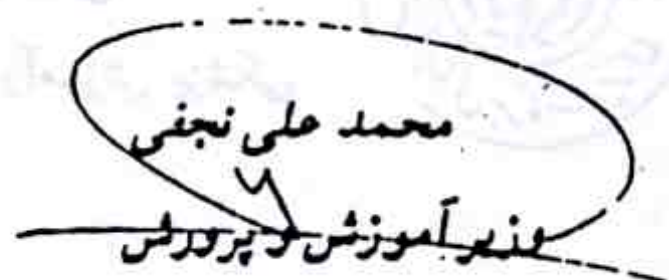 محمد علی نجفی
وزیر آموزش و پرورش